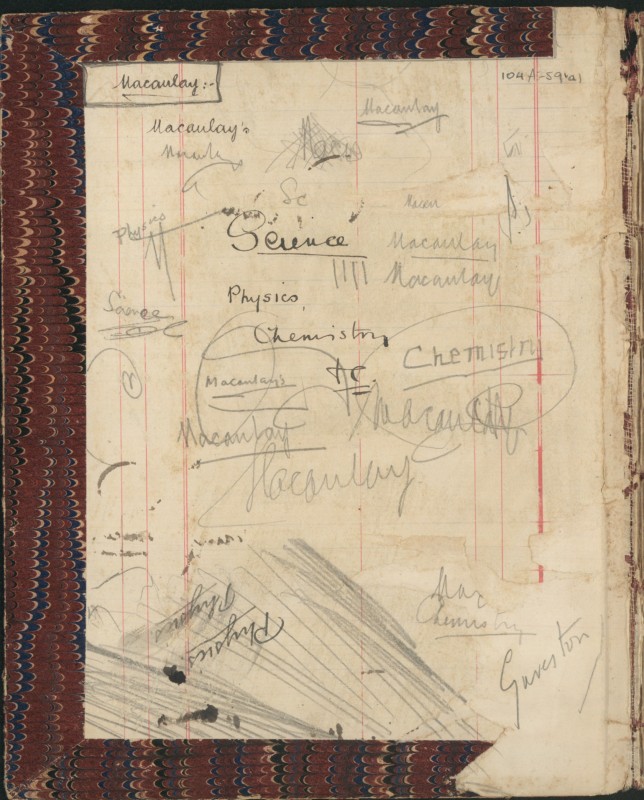 Macaulay:-
104A-59(a)
Macaulay
Macaulay's
Macaulay
Maca
Sc
Macau
Physics
Science
Macaulay
Macaulay
Physics,
Science
Chemistry
Chemistry
&c.
Macaulay's
Macaulay
Macaulay
Macaulay
Physics
Physics
Mac
Chemistry
Gaveston